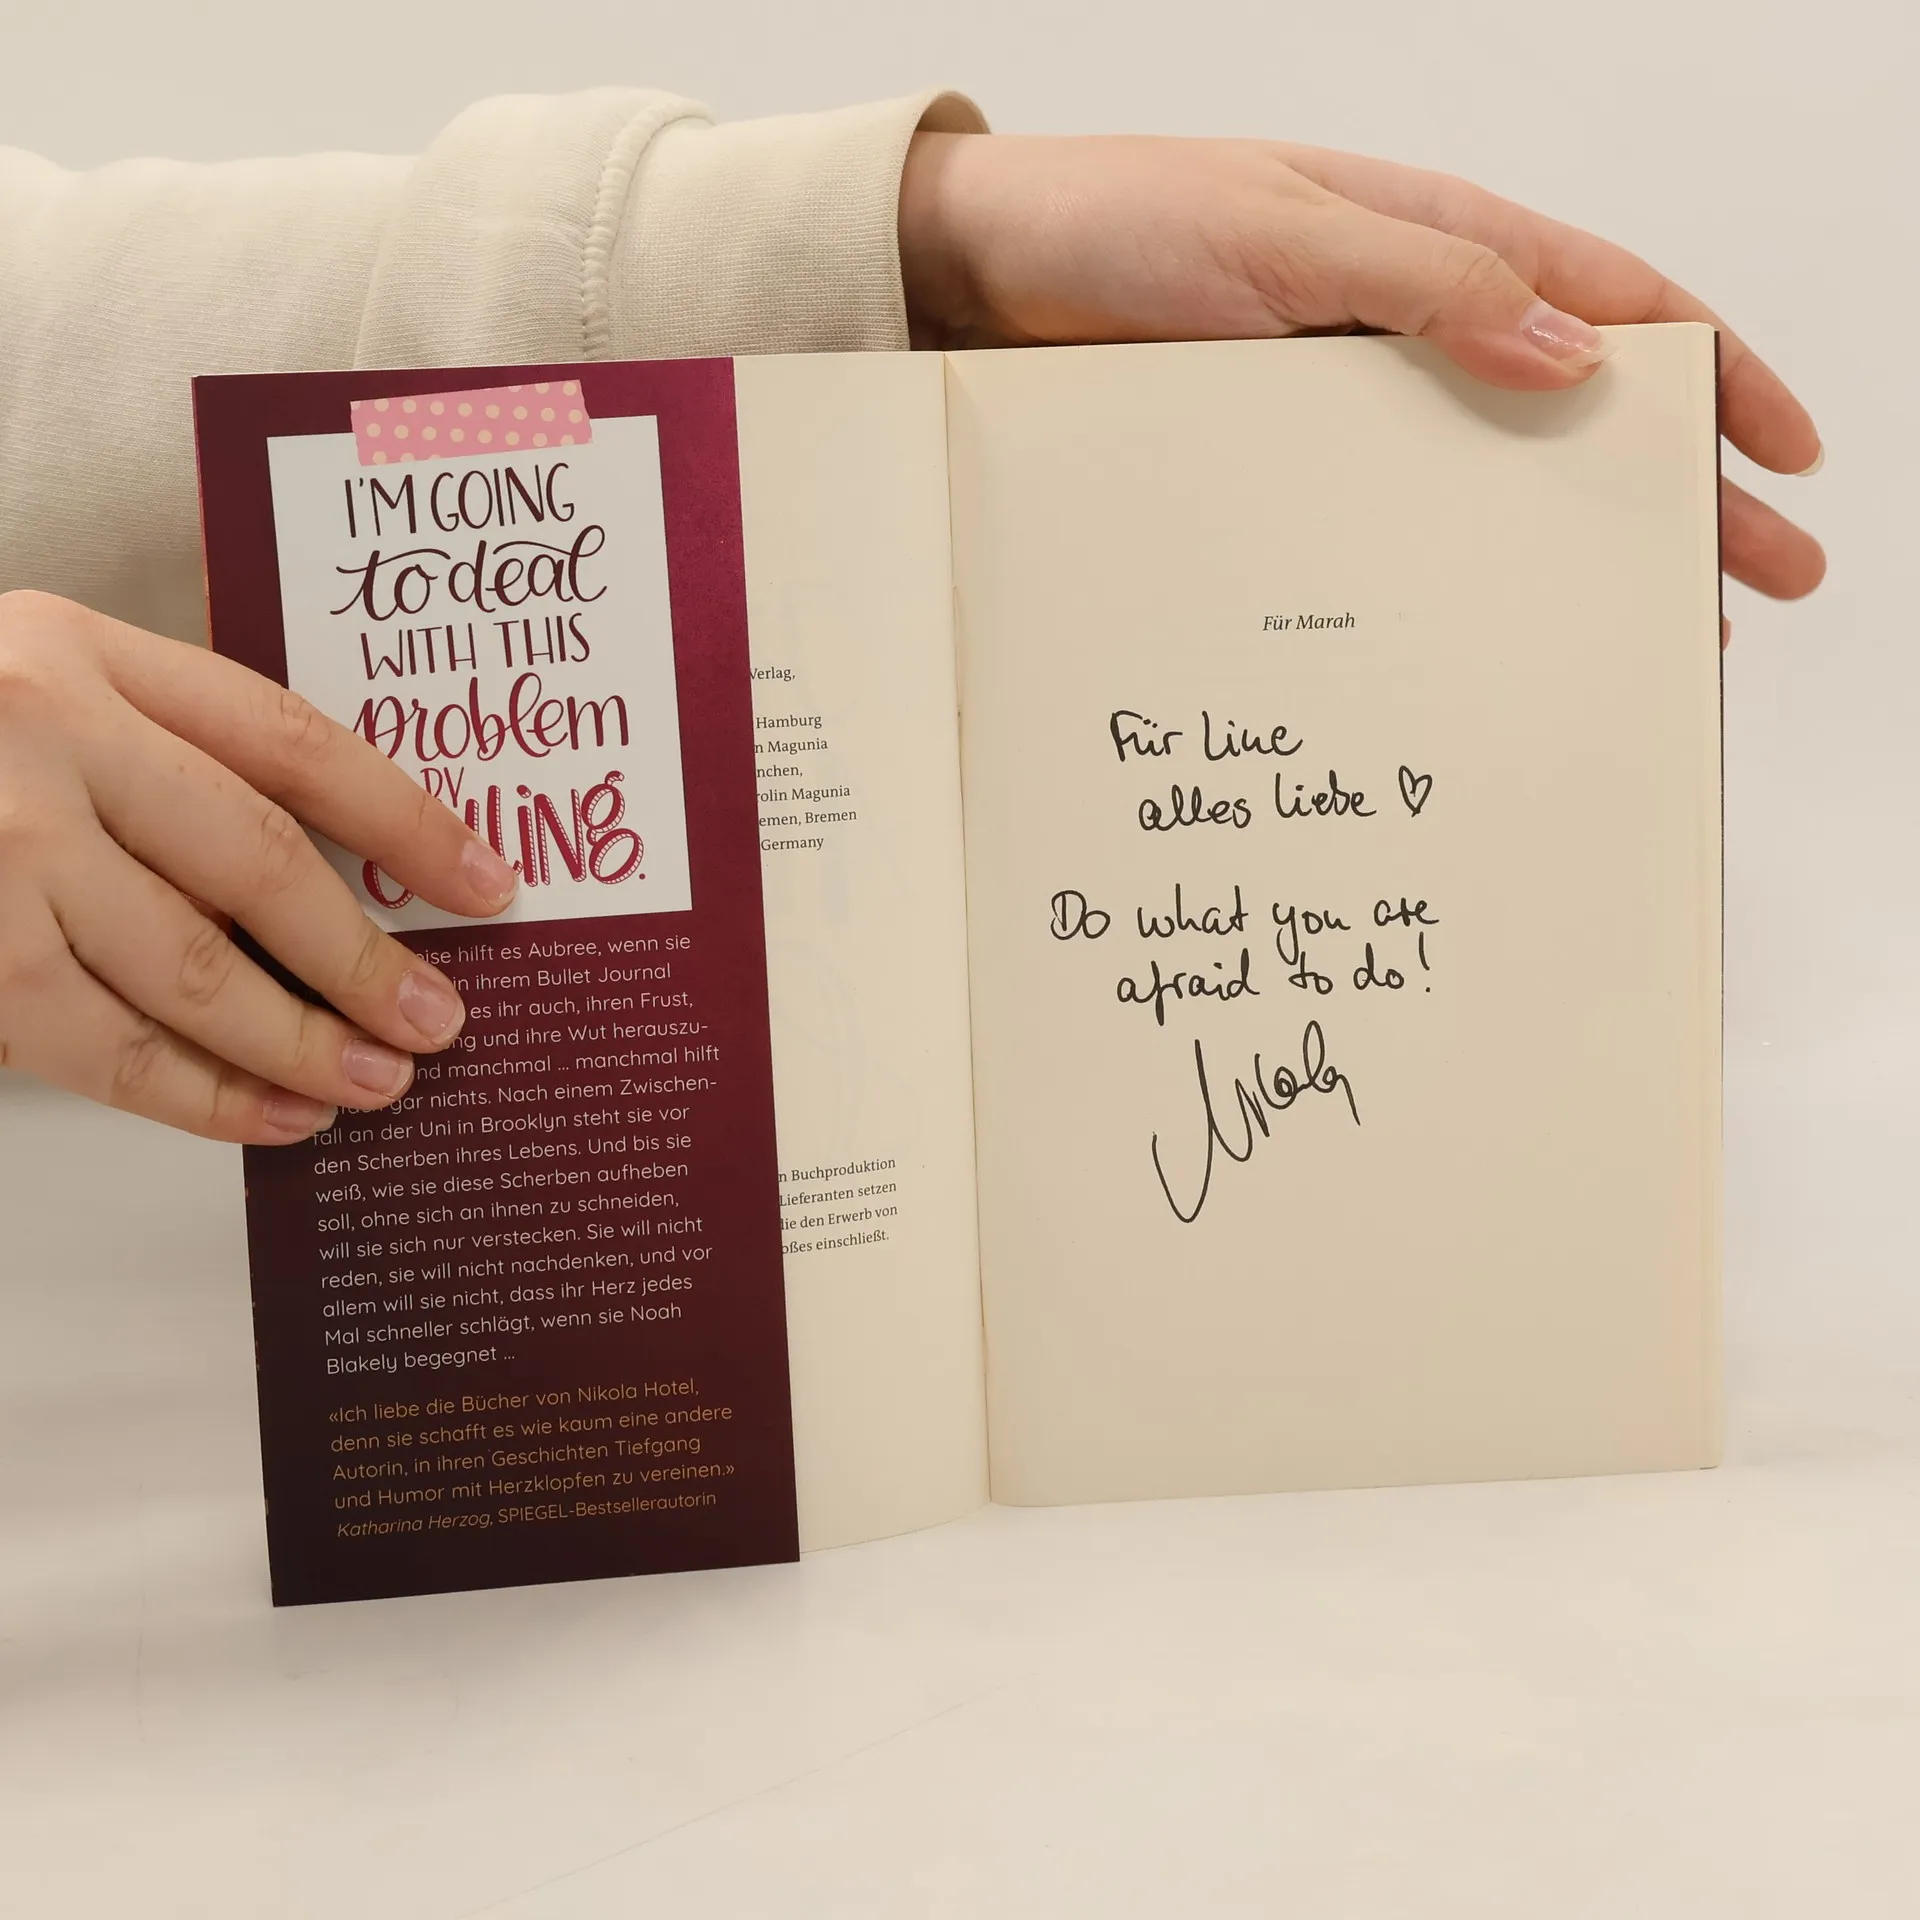 I'M GOING
to deal
WITH THIS
problem
BY
ling.
eise hilft es Aubree, wenn sie
in ihrem Bullet Journal
es ihr auch, ihren Frust,
ng und ihre Wut herauszu-
nd manchmal ... manchmal hilft
gar nichts. Nach einem Zwischen-
fall an der Uni in Brooklyn steht sie vor
den Scherben ihres Lebens. Und bis sie
weiß, wie sie diese Scherben aufheben
soll, ohne sich an ihnen zu schneiden,
will sie sich nur verstecken. Sie will nicht
reden, sie will nicht nachdenken, und vor
allem will sie nicht, dass ihr Herz jedes
Mal schneller schlägt, wenn sie Noah
Blakely begegnet ...
«Ich liebe die Bücher von Nikola Hotel,
denn sie schafft es wie kaum eine andere
Autorin, in ihren Geschichten Tiefgang
und Humor mit Herzklopfen zu vereinen.»
Katharina Herzog, SPIEGEL-Bestsellerautorin
Verlag,
Hamburg
n Magunia
nchen,
rolin Magunia
emen, Bremen
Germany
n Buchproduktion
Lieferanten setzen
die den Erwerb von
oßes einschließt.
Für Marah
Für Line
alles Liebe ♡
Do what you are
afraid to do!
Nikola